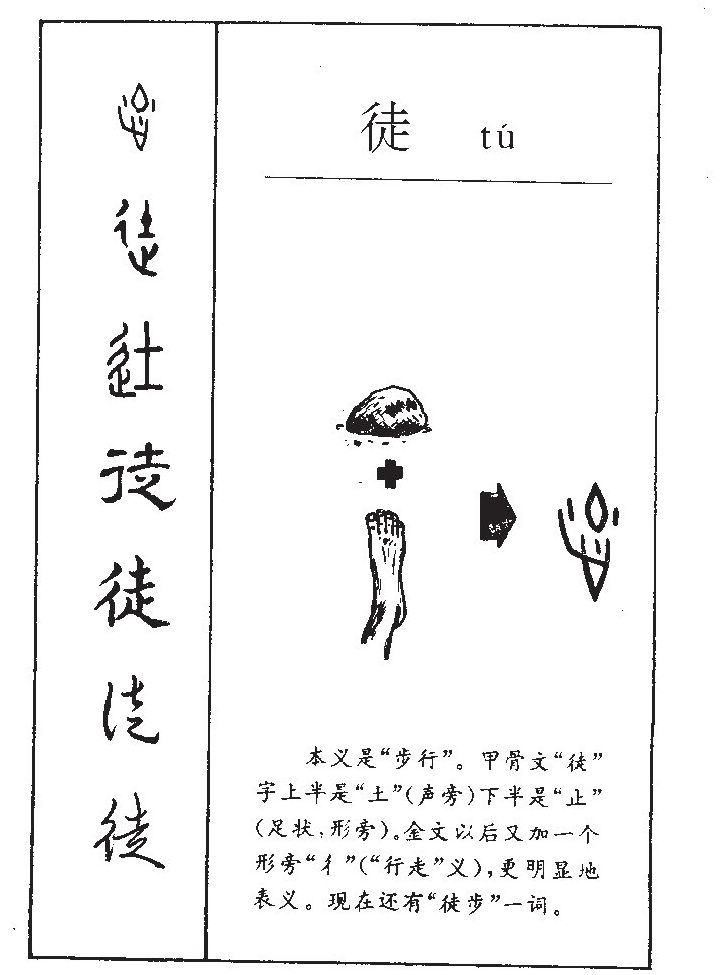 徒 tú
本义是“步行”。甲骨文“徒”
字上半是“土”(声旁)下半是“止”
(足状,形旁)。金文以后又加一个
形旁“彳”(“行走”义),更明显地
表义。现在还有“徒步”一词。
徒
徒
徒
徒
徒